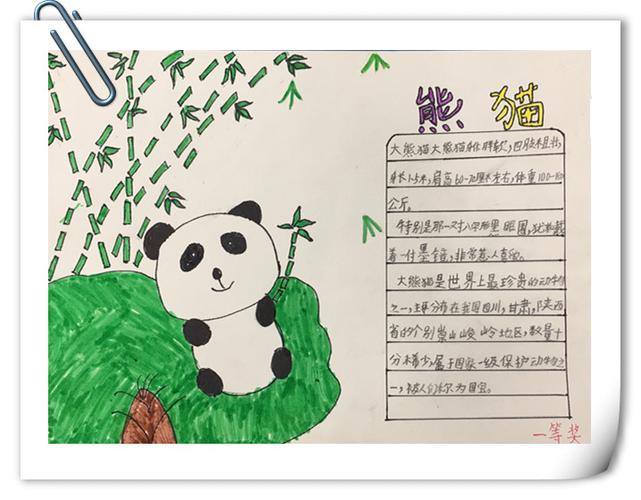 熊猫
大熊猫大熊猫身体胖软，四肢粗壮，
身长1.5米，肩高60-70厘米左右，体重100-180
公斤。
特别是那一对八字形黑眼圈，犹如戴
着一付墨镜，非常惹人喜爱。
大熊猫是世界上最珍贵的动物
之一，主要分布在我国四川，甘肃，陕西
省的个别崇山峻岭地区，数量十
分稀少，属于国家一级保护动物之
一，被人们称为国宝。
一等奖